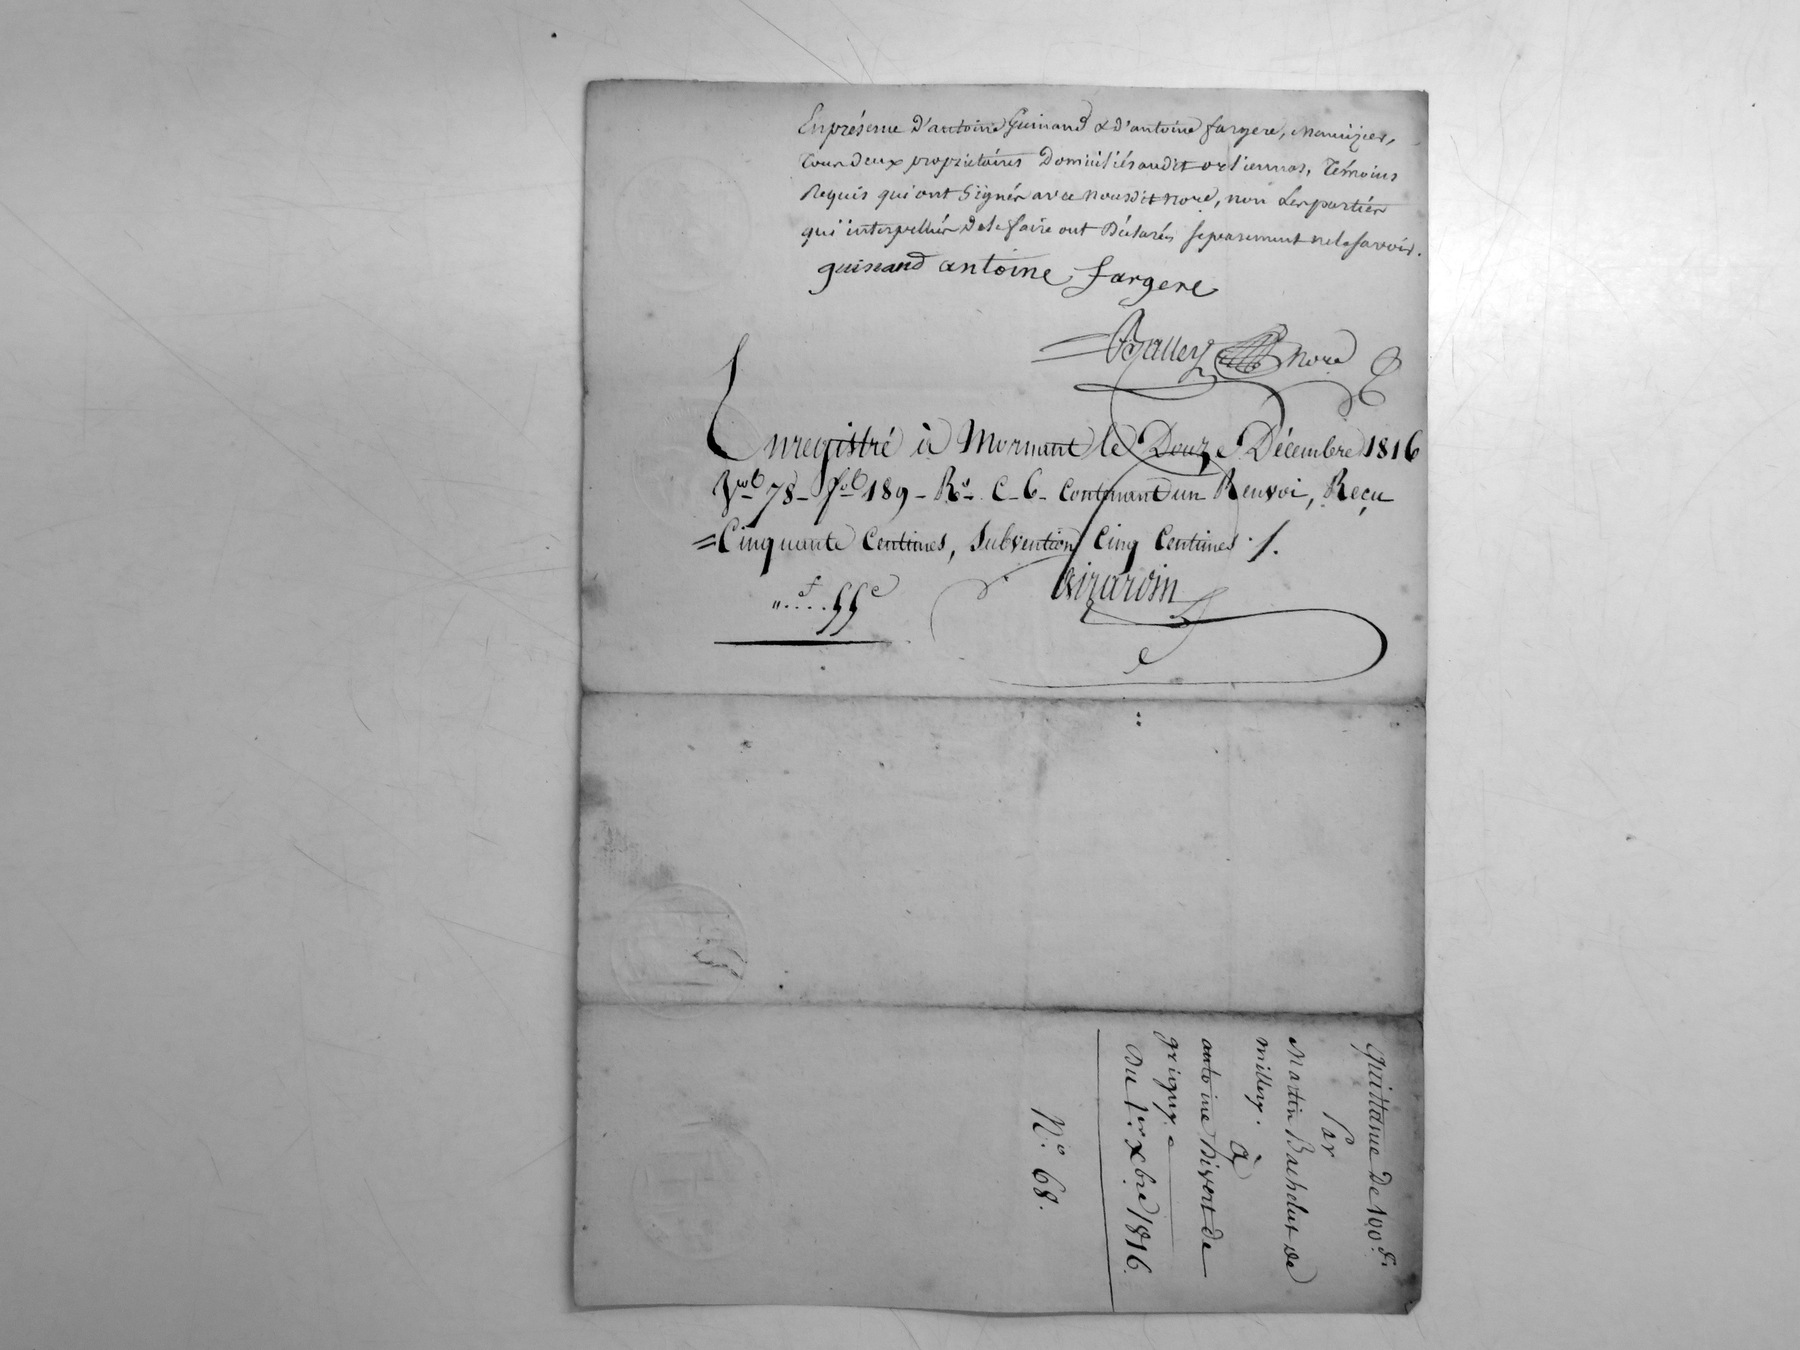 En présence d'antoine Guinand & d'antoine fargere, Menuizier,
tous deux propriétaires Domiciliés audit orliennas, témoins
Requis qui ont Signés avec nous dit Nore, non Les parties
qui interpellées de le faire ont Déclarées séparement ne le savoir.
guinand antoine fargere
Balley Nore
Enregistré à Mornant le Douze Décembre 1816
Vol 78 - fol 189 - Ro. C. 6 - contenant un Renvoi, Reçu
Cinquante Centimes, Subvention Cinq Centimes ./.
".... f 55 c
Girardin
Quittance de 100 f.
Par
Martin Bachelut de
millery.
à
antoine Divert de
grigny.
Du 1er xbre 1816.
N.o 68.